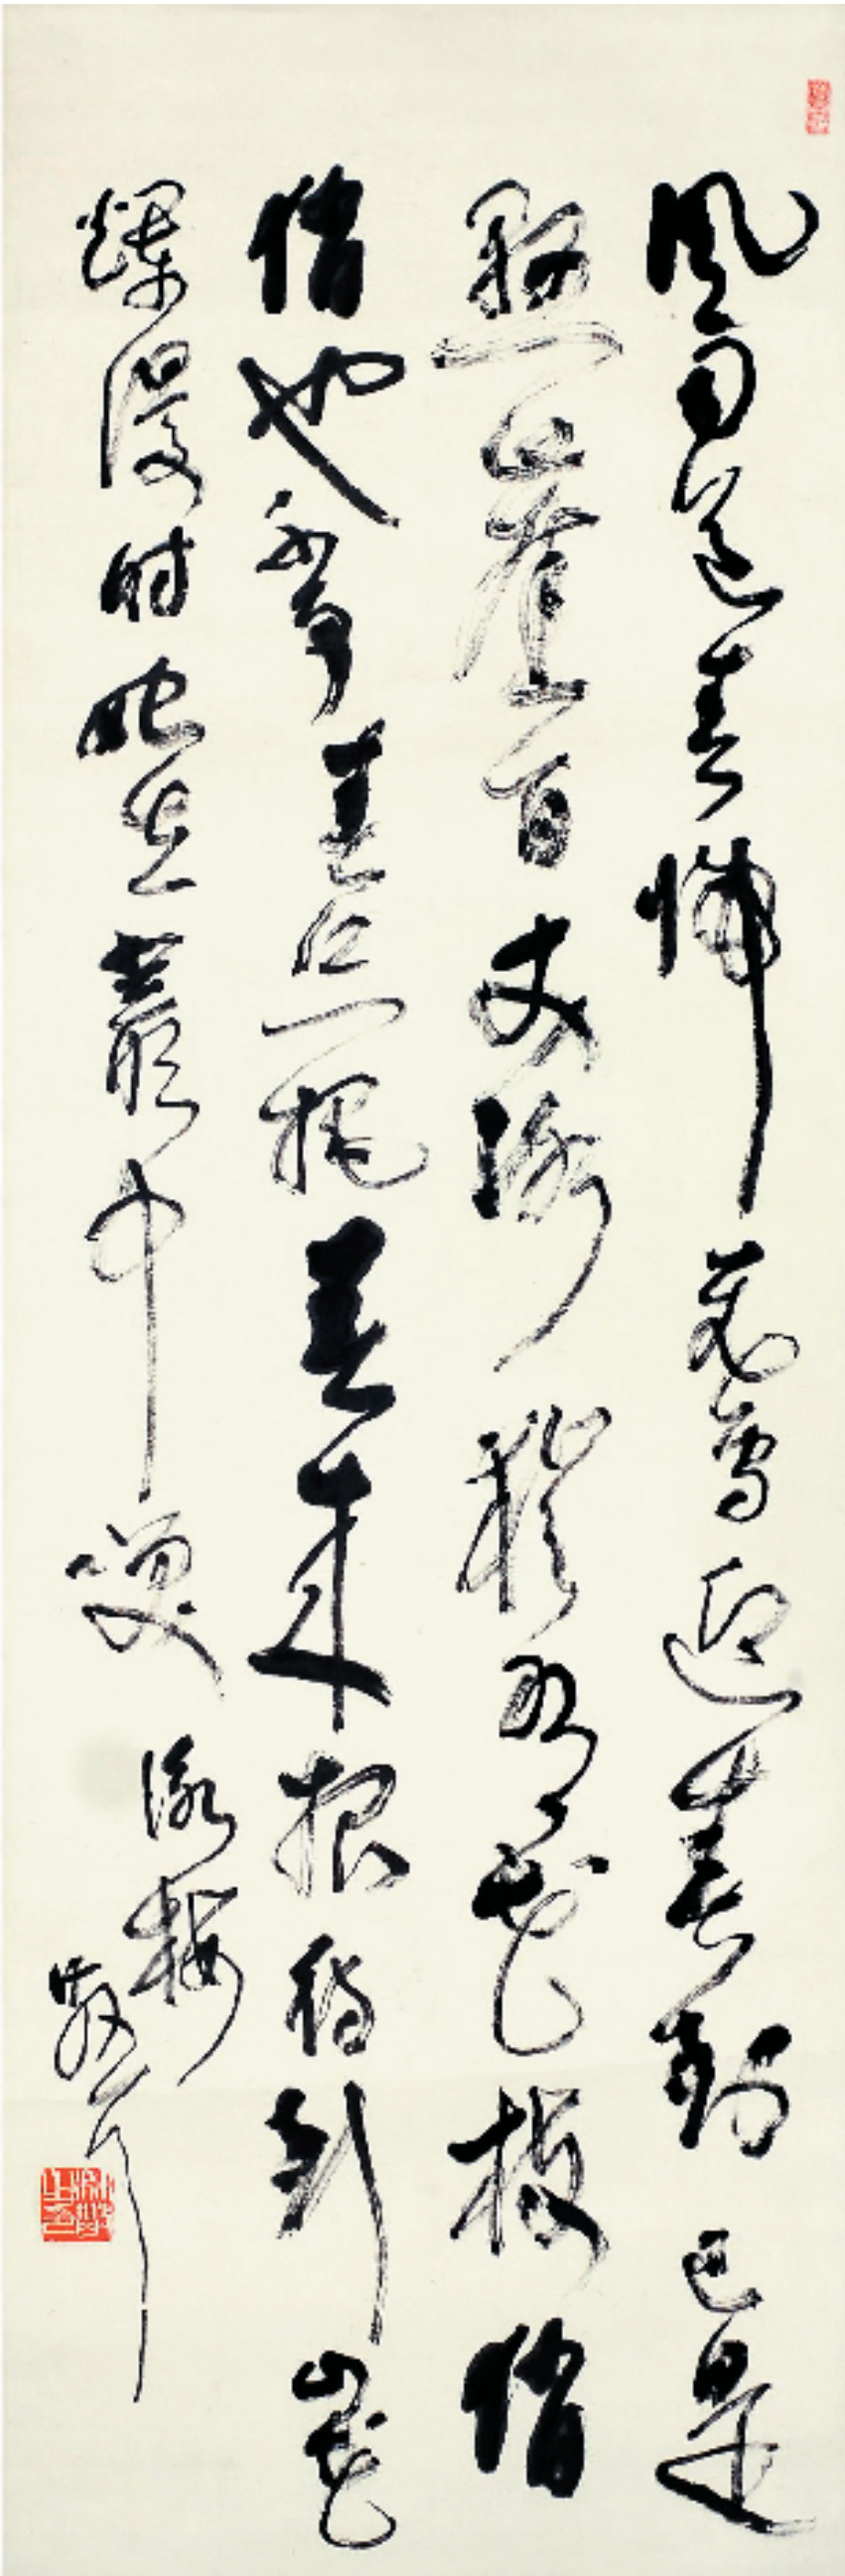 風雨送春帰飛雪迎春到已是
懸崖百丈冰猶有花枝俏
俏也不爭春只把春來報待到山花
爛漫時她在叢中笑
詠梅